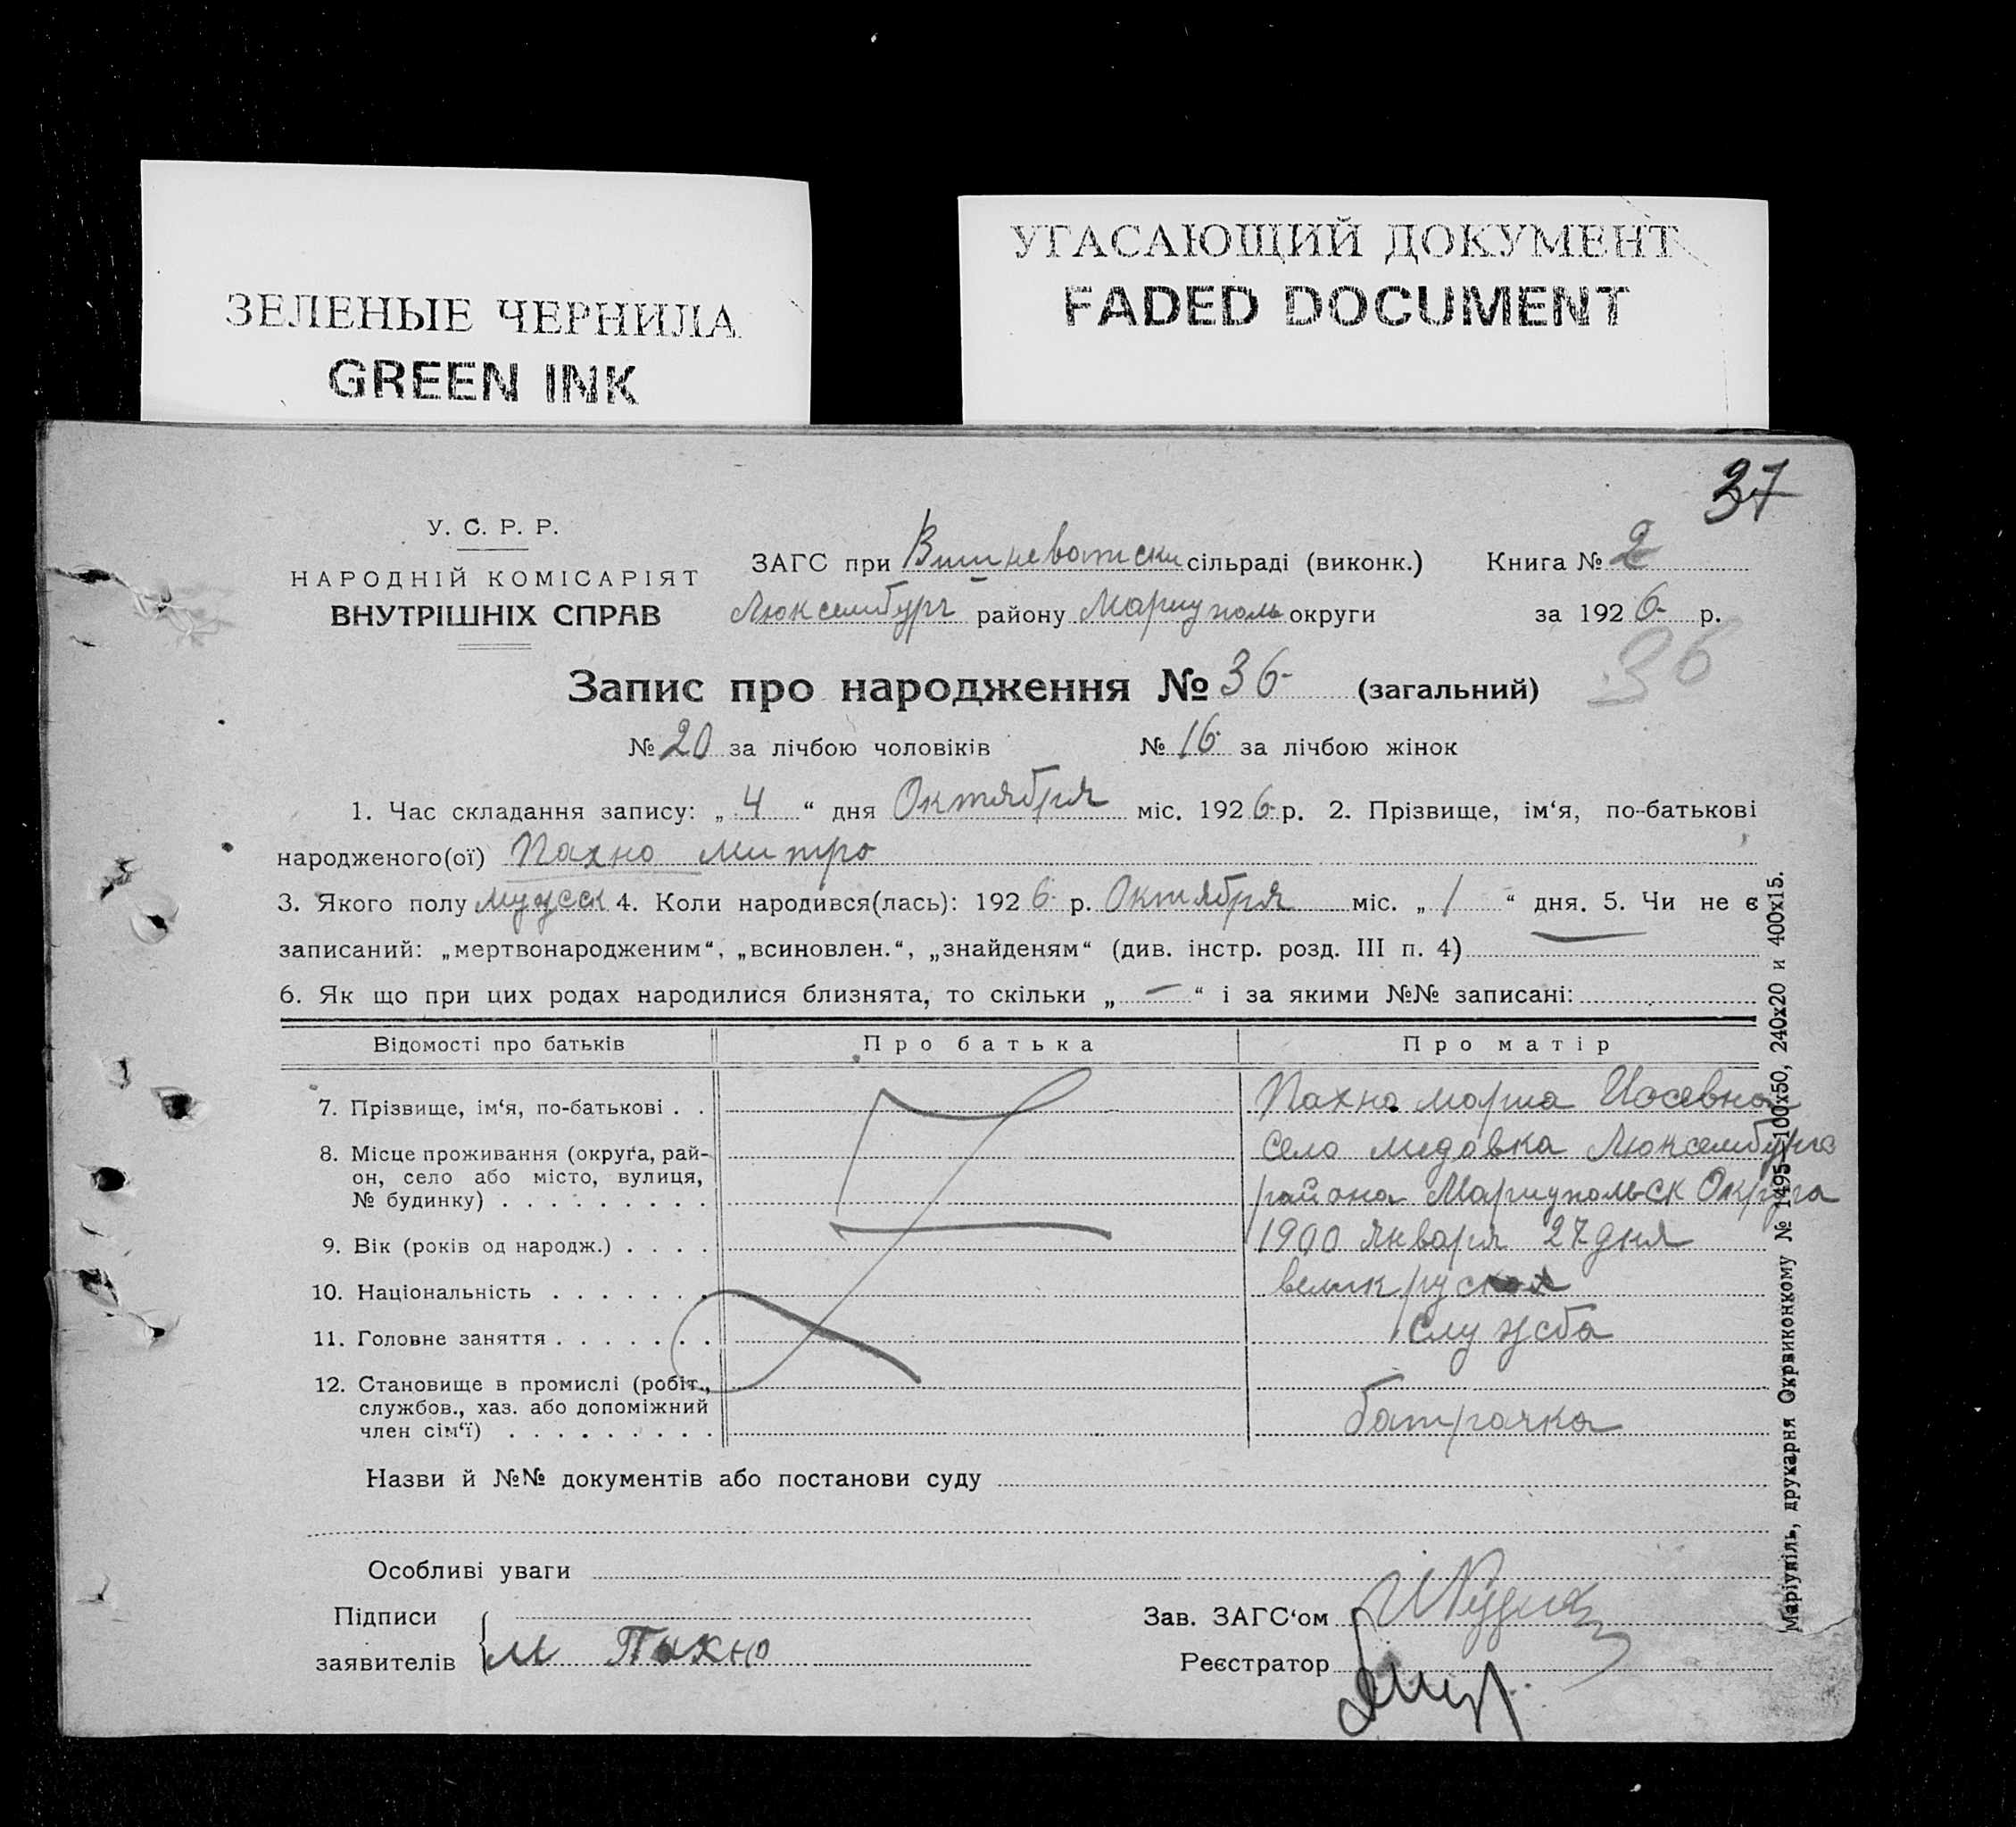 ЗЕЛЕНЫЕ ЧЕРНИЛА
GREEN INK
УГАСАЮЩИЙ ДОКУМЕНТ
FADED DOCUMENT
37
У. С. Р. Р.
НАРОДНІЙ КОМІСАРІЯТ
ВНУТРІШНІХ СПРАВ
ЗАГС при Вишневатски сільраді (виконк.) Книга № 2
Люксембург району Мариуполь округи за 1926 р.
36
Запис про народження № 36 (загальний)
№ 20 за лічбою чоловіків № 16 за лічбою жінок
1. Час складання запису: „ 4 “ дня Октября міс. 1926 р. 2. Прізвище, ім‘я, по-батькові
народженого(ої) Пахно Митро
3. Якого полу мужск 4. Коли народився(лась): 1926 р. Октября міс. „ 1 “ дня. 5. Чи не є
записаний: „мертвонародженим“, „всиновлен.“, „знайденям“ (див. інстр. розд. III п. 4)
6. Як що при цих родах народилися близнята, то скільки „ — “ і за якими №№ записані:
Відомості про батьків Про батька Про матір
7. Прізвище, ім‘я, по-батькові . . Пахно Мариа Иосевна
8. Місце проживання (округа, рай- село Медовка Люксембурга
он, село або місто, вулиця,
№ будинку) . . . . . . . . . района Мариупольск Округа
9. Вік (років од народж.) . . . . 1900 января 27 дня
10. Національність . . . . . . . великруская
11. Головне заняття . . . . . . . служба
12. Становище в промислі (робіт.,
службов., хаз. або допоміжний
член сім‘ї) . . . . . . . . . батрачка
Назви й №№ документів або постанови суду
Особливі уваги
Підписи
заявителів М Пахно
Зав. ЗАГС‘ом
Реєстратор
Маріупіль, друкарня Окрвиконкому № 1495—100x50, 240x20 и 400x15.